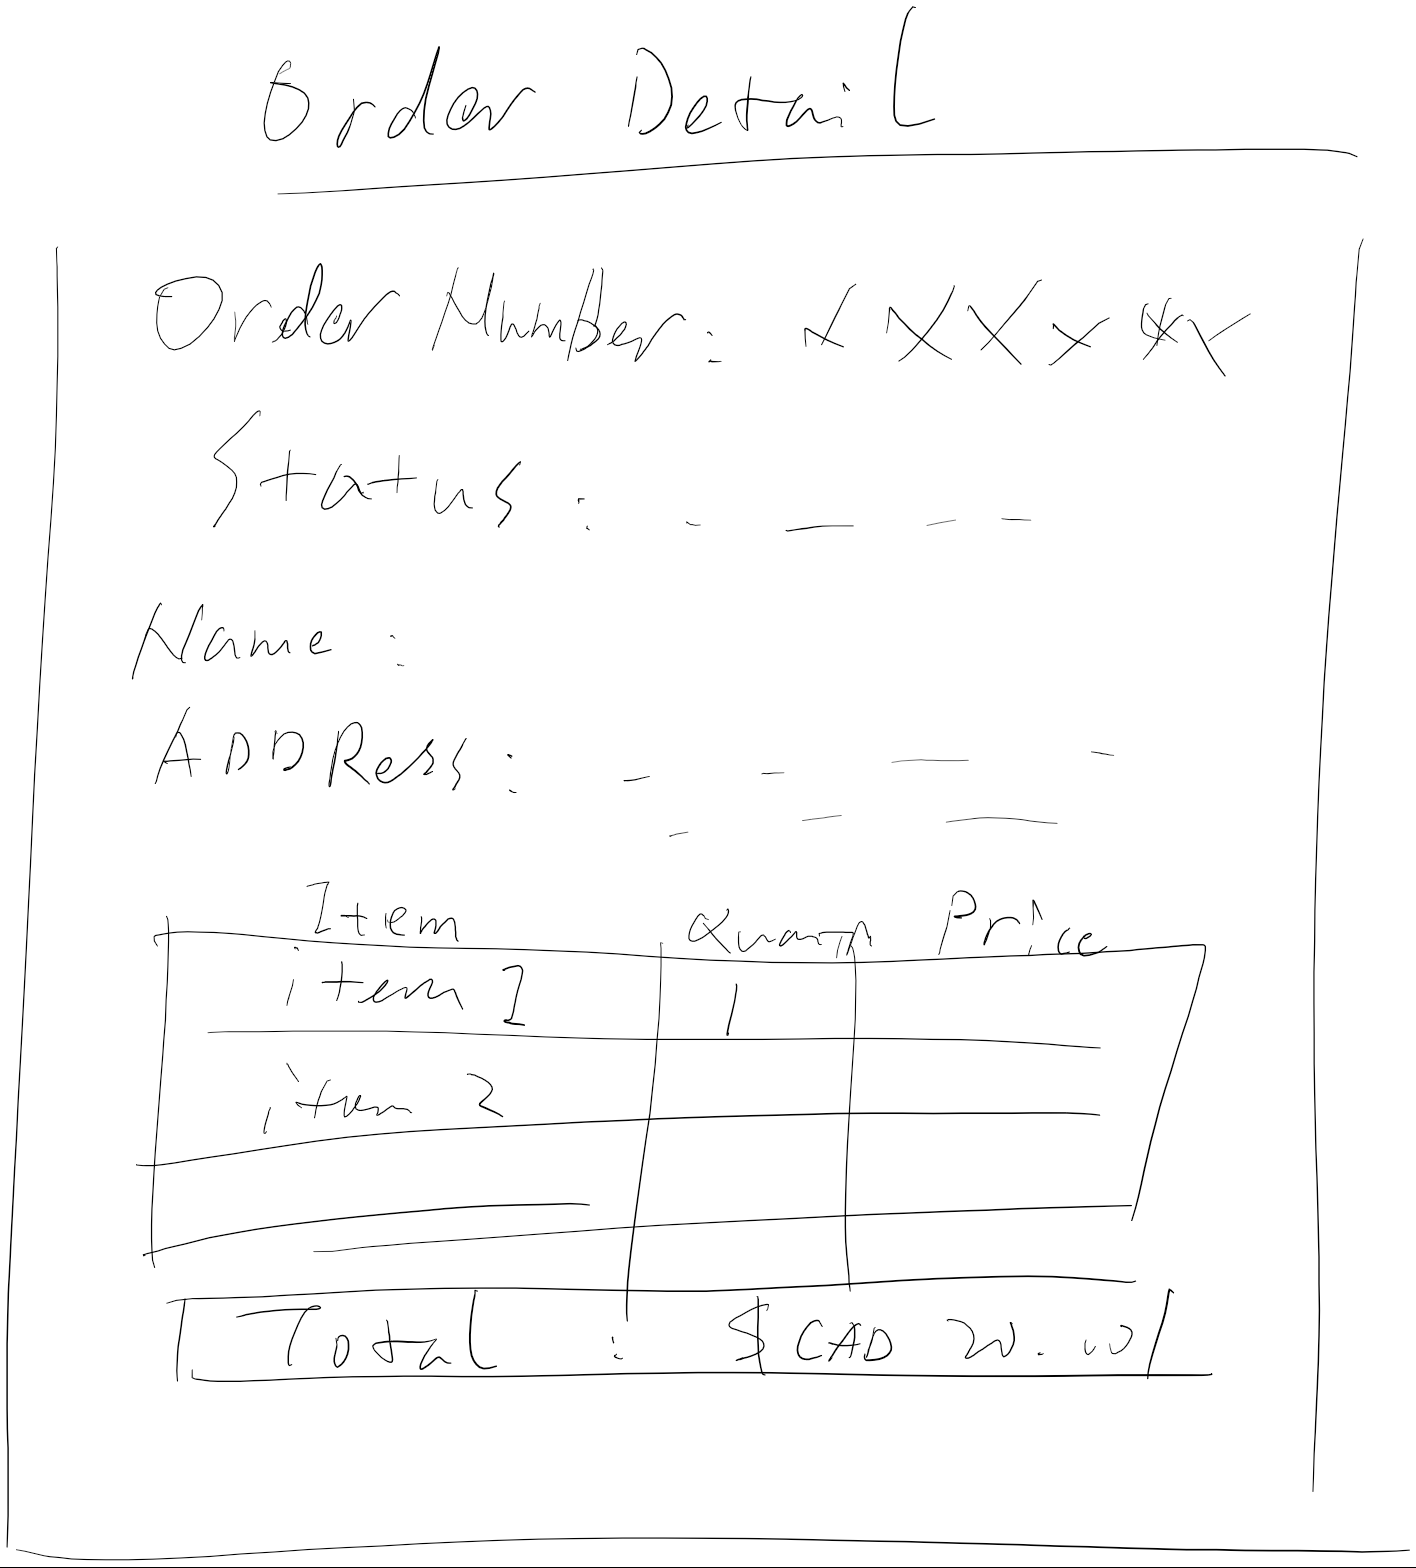 Order Detail
Order Number: XXXXXX
Status: - - - -
Name:
ADDRess: - - - -
- - -
Item Quantity Price
item 1 1
item 2
Total : $ CAD 20.00